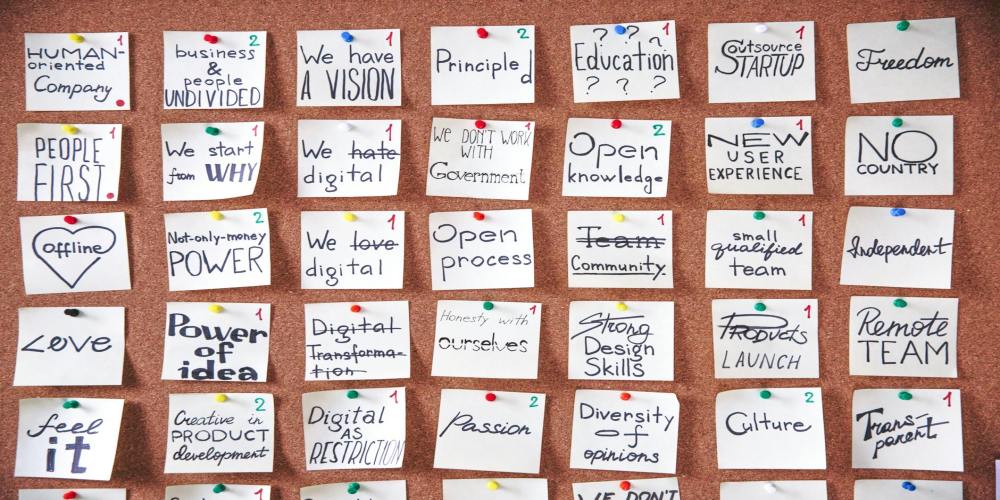 1
HUMAN-
oriented
Company
2
business
&
people
UNDIVIDED
1
We have
A VISION
2
Principled
1
? ? ?
Education
? ? ?
1
Outsource
STARTUP
Freedom
1
PEOPLE
FIRST
1
We start
from WHY
1
We hate
digital
1
We DON'T WORK
WITH
Government
2
Open
knowledge
1
NEW
USER
EXPERIENCE
NO
COUNTRY
offline
2
Not-only-money
POWER
1
We love
digital
Open
process
1
Team
Community
1
small
qualified
team
Independent
Love
1
Power
of
idea
Digital
Transforma-
tion
1
Honesty with
ourselves
Strong
Design
Skills
1
Products
LAUNCH
Remote
TEAM
feel
it
2
Creative in
PRODUCT
development
1
Digital
AS
RESTRICTION
2
Passion
Diversity
of
opinions
2
Culture
1
Trans-
parent
1
1
WE DON'T